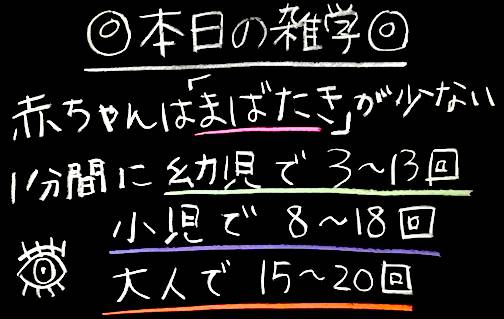 ◎本日の雑学◎
赤ちゃんは「まばたき」が少ない
1分間に幼児で 3〜13回
小児で 8〜18回
大人で 15〜20回